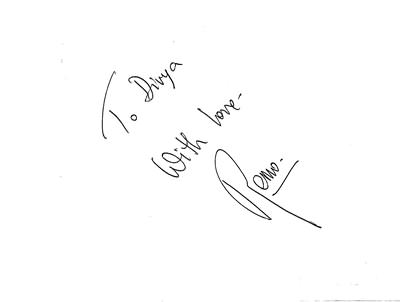 To Divya
With love-
Remo.